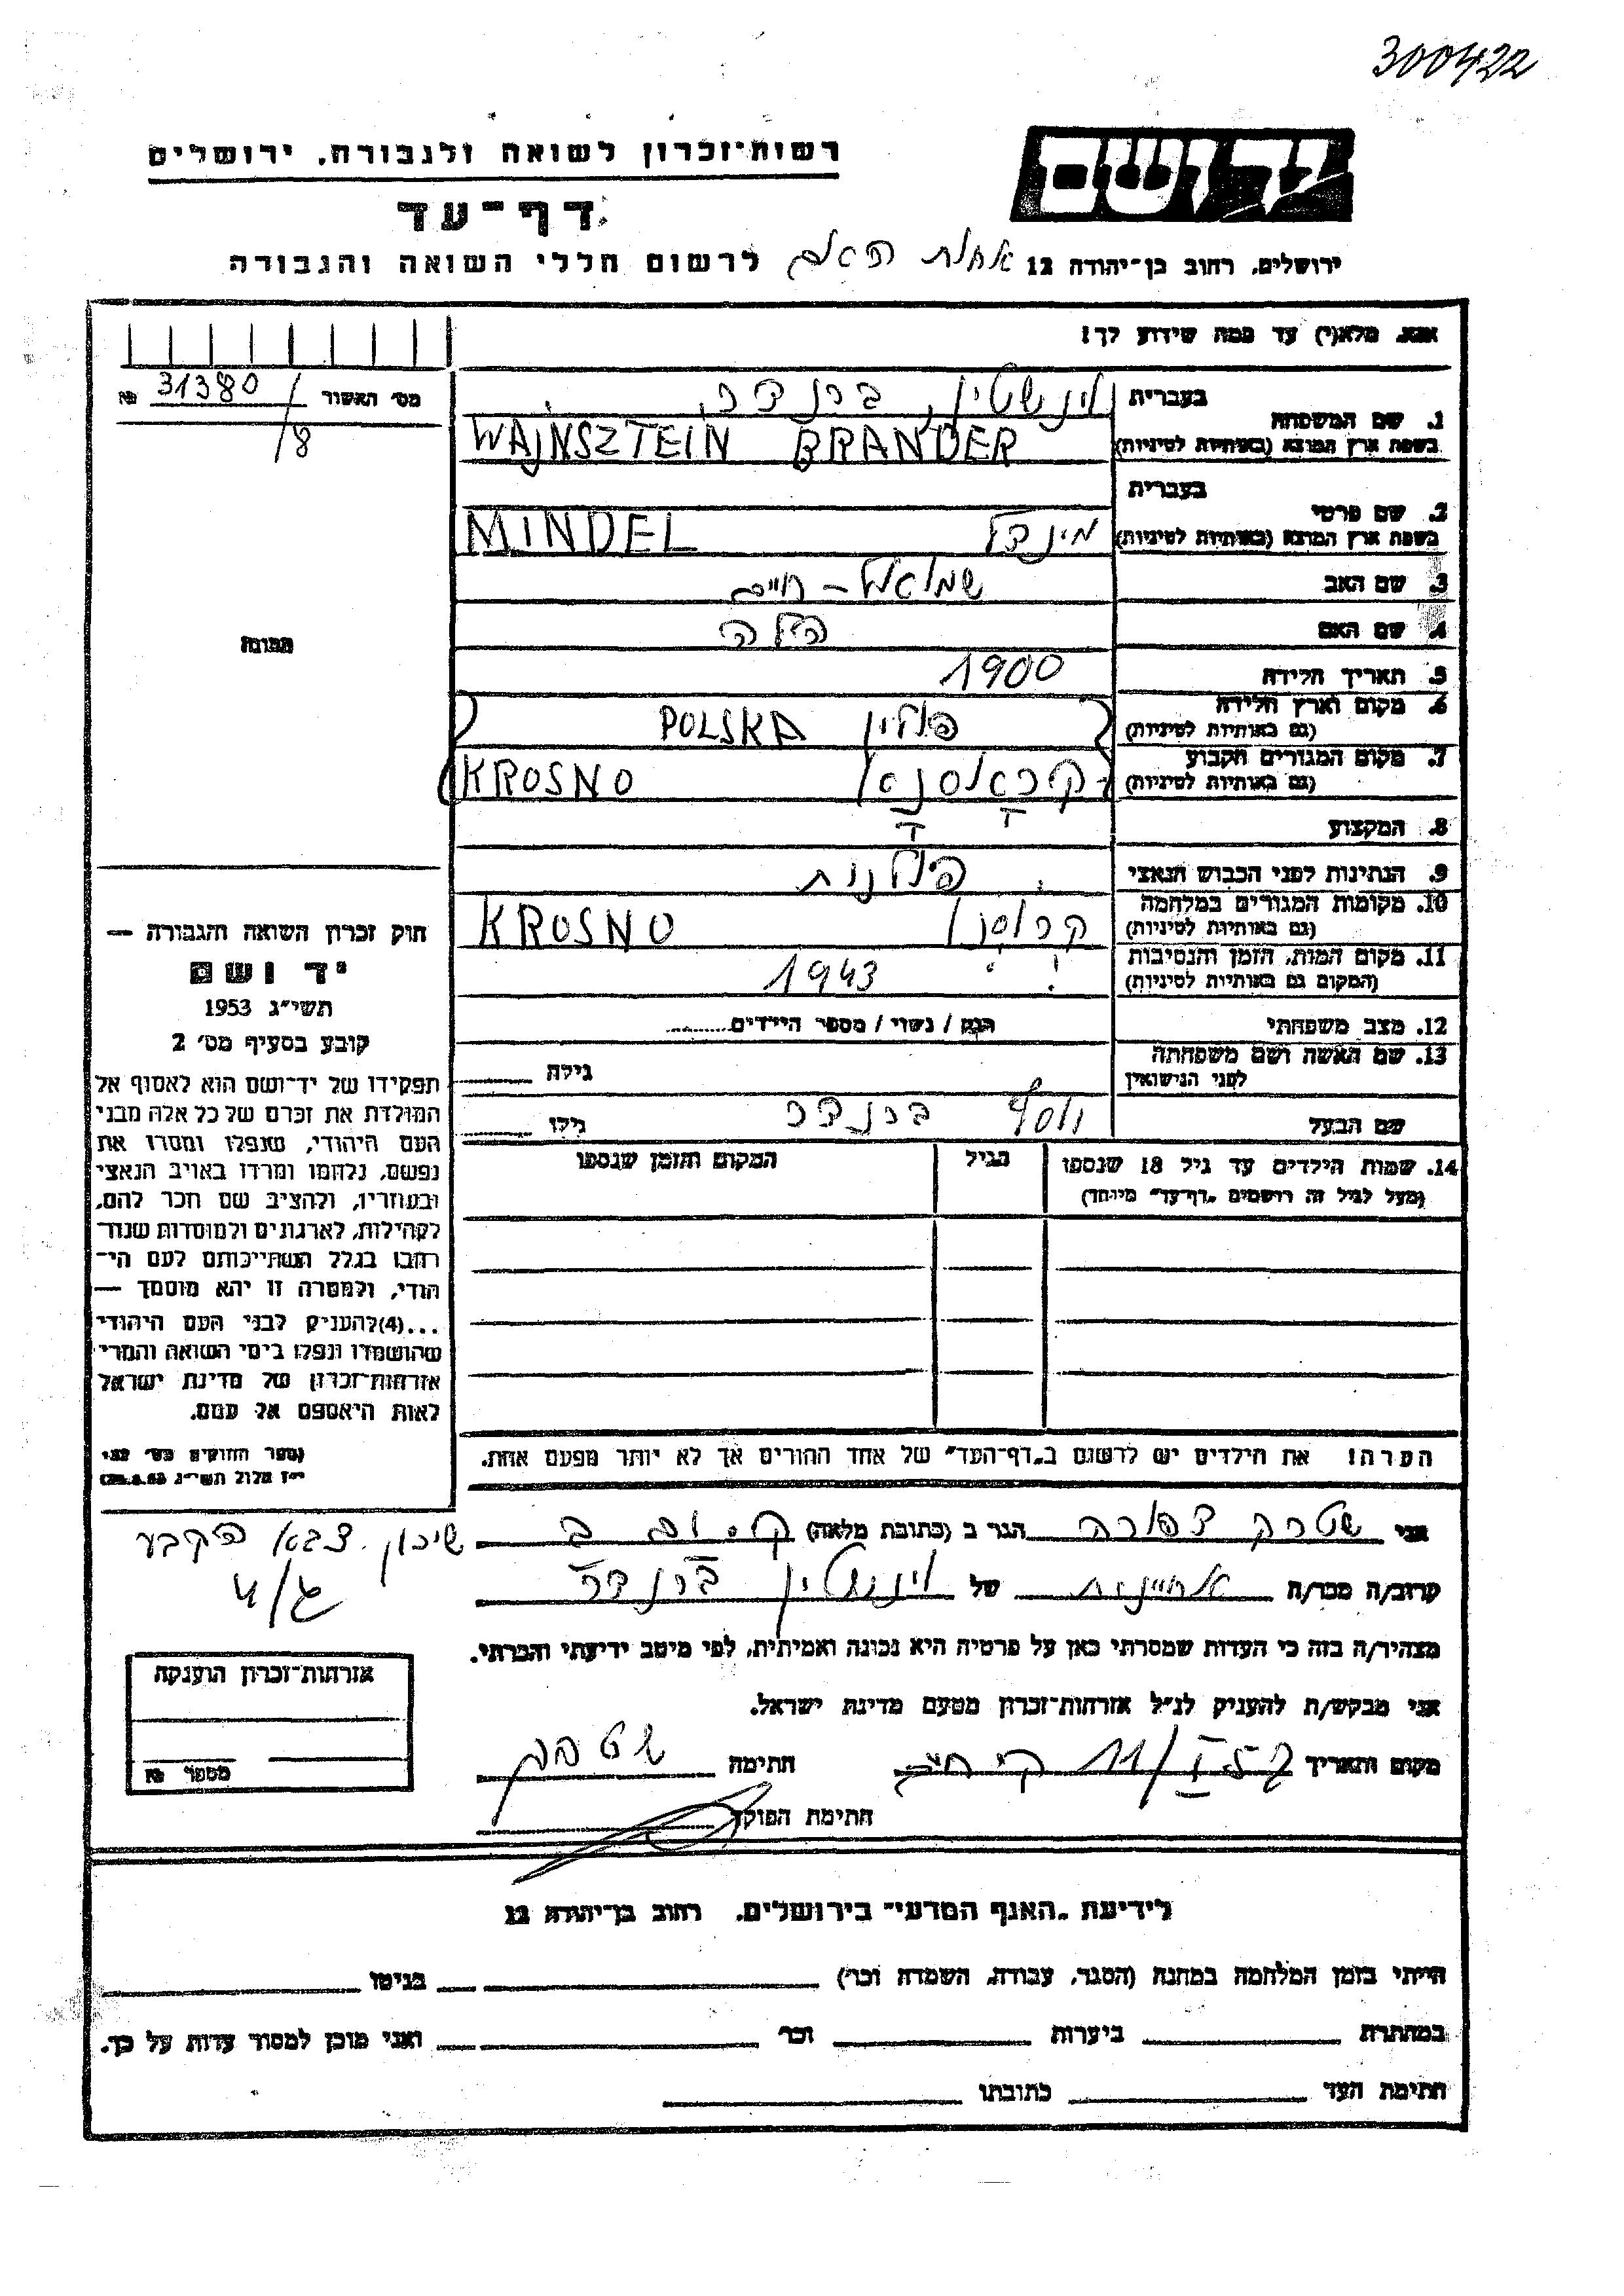 300422
רשות־זכרון לשואה ולגבורה, ירושלים
יד ושם
דף־עד
ירושלים, רחוב בן־יהודה 12
לרשום חללי השואה והגבורה
אנא, מלא(י) עד כמה שידוע לך!
מס׳ האשור 31380 №
/8
1. שם המשפחה
בעברית וינשטין, ברנדר
בשפת ארץ המוצא (באותיות לטיניות) WAJNSZTEIN BRANDER
2. שם פרטי
בעברית
בשפת ארץ המוצא (באותיות לטיניות) מינדל MINDEL
3. שם האב שמואל - חיים
4. שם האם הלה
תמונה
5. תאריך הלידה 1900
6. מקום וארץ הלידה פולין POLSKA
(גם באותיות לטיניות)
7. מקום המגורים הקבוע KROSNO
(גם באותיות לטיניות)
8. המקצוע
9. הנתינות לפני הכבוש הנאצי פולנית
10. מקומות המגורים במלחמה קרוסנו KROSNO
(גם באותיות לטיניות)
11. מקום המות, הזמן והנסיבות 1943
(המקום גם באותיות לטיניות)
12. מצב משפחתי רווק / נשוי / מספר הילדים
13. שם האשה ושם משפחתה
לפני הנישואין גילה
שם הבעל יוסף ברנדר גילו
14. שמות הילדים עד גיל 18 שנספו הגיל המקום והזמן שנספו
(מעל לגיל זה רושמים „דף־עד” מיוחד)
חוק זכרון השואה והגבורה —
יד ושם
תשי״ג 1953
קובע בסעיף מס׳ 2
תפקידו של יד־ושם הוא לאסוף אל
המולדת את זכרם של כל אלה מבני
העם היהודי, שנפלו ומסרו את
נפשם, נלחמו ומרדו באויב הנאצי
ובעוזריו, ולהציב שם וזכר להם,
לקהילות, לארגונים ולמוסדות שנח־
רבו בגלל השתייכותם לעם הי־
הודי, ולמטרה זו יהא מוסמך —
...(4)להעניק לבני העם היהודי
שהושמדו ונפלו בימי השואה והמרי
אזרחות־זכרון של מדינת ישראל
לאות היאספם אל עמם.
(ספר החוקים מס׳ 132
י״ז אלול תשי״ג 28.8.53)
הערה! את הילדים יש לרשום ב„דף־העד” של אחד ההורים אך לא יותר מפעם אחת.
אני שטרק צפורה הגר ב (כתובת מלאה) שיכון צבא הקבע
קרוב/ה מכר/ה אחיינית של וינשטין ברנדר
מצהיר/ה בזה כי העדות שמסרתי כאן על פרטיה היא נכונה ואמיתית, לפי מיטב ידיעתי והכרתי.
אני מבקש/ת להעניק לנ״ל אזרחות־זכרון מטעם מדינת ישראל.
מקום ותאריך חתימה שטרק
חתימת הפוקד
אזרחות־זכרון הוענקה
מספר №
לידיעת „האגף המדעי” בירושלים, רחוב בן־יהודה 12
הייתי בזמן המלחמה במחנה (הסגר, עבודה, השמדה וכו׳) בגיטו
במחתרת ביערות וכו׳ ואני מוכן למסור עדות על כך.
חתימת העד כתובתו